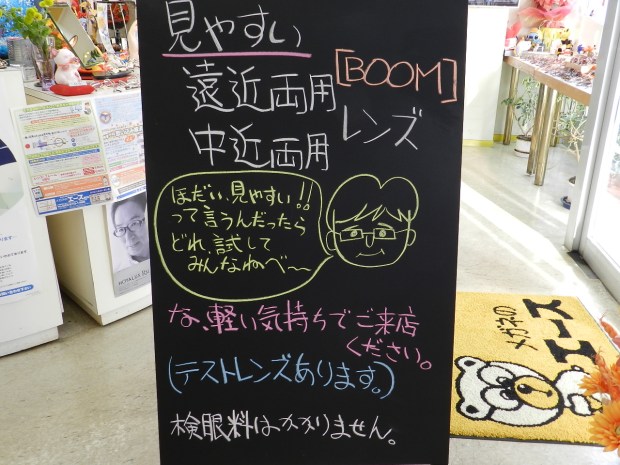 見やすい
[BOOM]
遠近両用
中近両用
レンズ
ほだい、見やすい!!
って言うんだったら
どれ、試して
みんなねべ〜
な、軽い気持ちでご来店
ください。
(テストレンズあります。)
検眼料はかかりません。
メガネの
エース